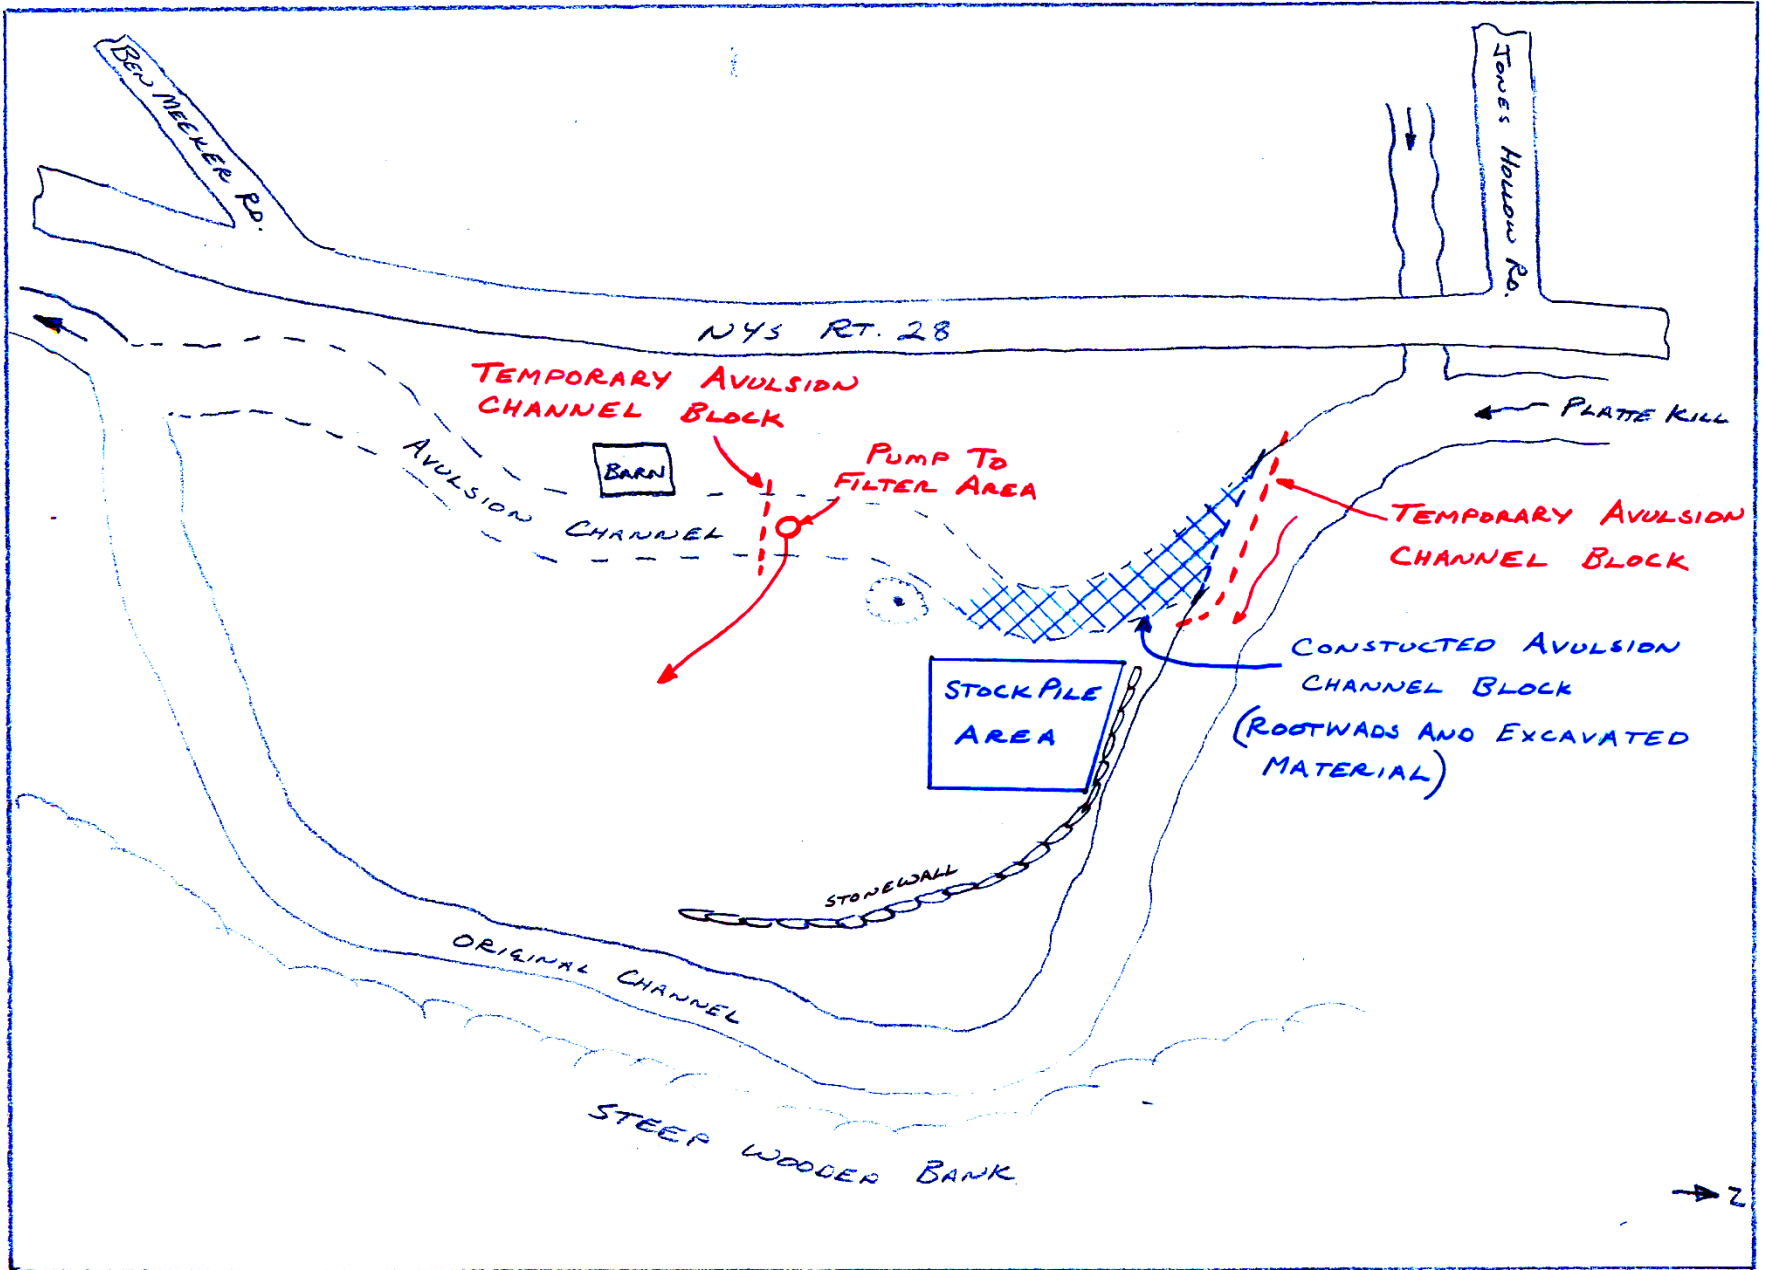 BEN MEEKER RD.
JONES HOLLOW RD.
NYS RT. 28
PLATTE KILL
TEMPORARY AVULSION
CHANNEL BLOCK
BARN
PUMP TO
FILTER AREA
AVULSION CHANNEL
TEMPORARY AVULSION
CHANNEL BLOCK
CONSTUCTED AVULSION
CHANNEL BLOCK
(ROOTWADS AND EXCAVATED
MATERIAL)
STOCKPILE
AREA
STONEWALL
ORIGINAL CHANNEL
STEEP WOODED BANK
N